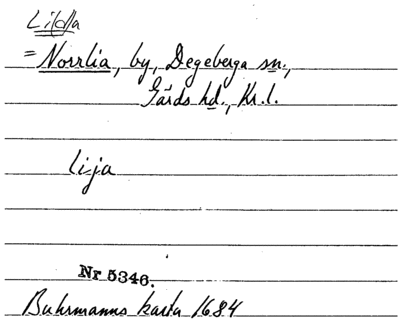 Li(d)a
= Norrlia, by, Degeberga sn.,
Gärds hd., Kr.l.
lija
Nr 5346.
Buhrmanns karta 1684